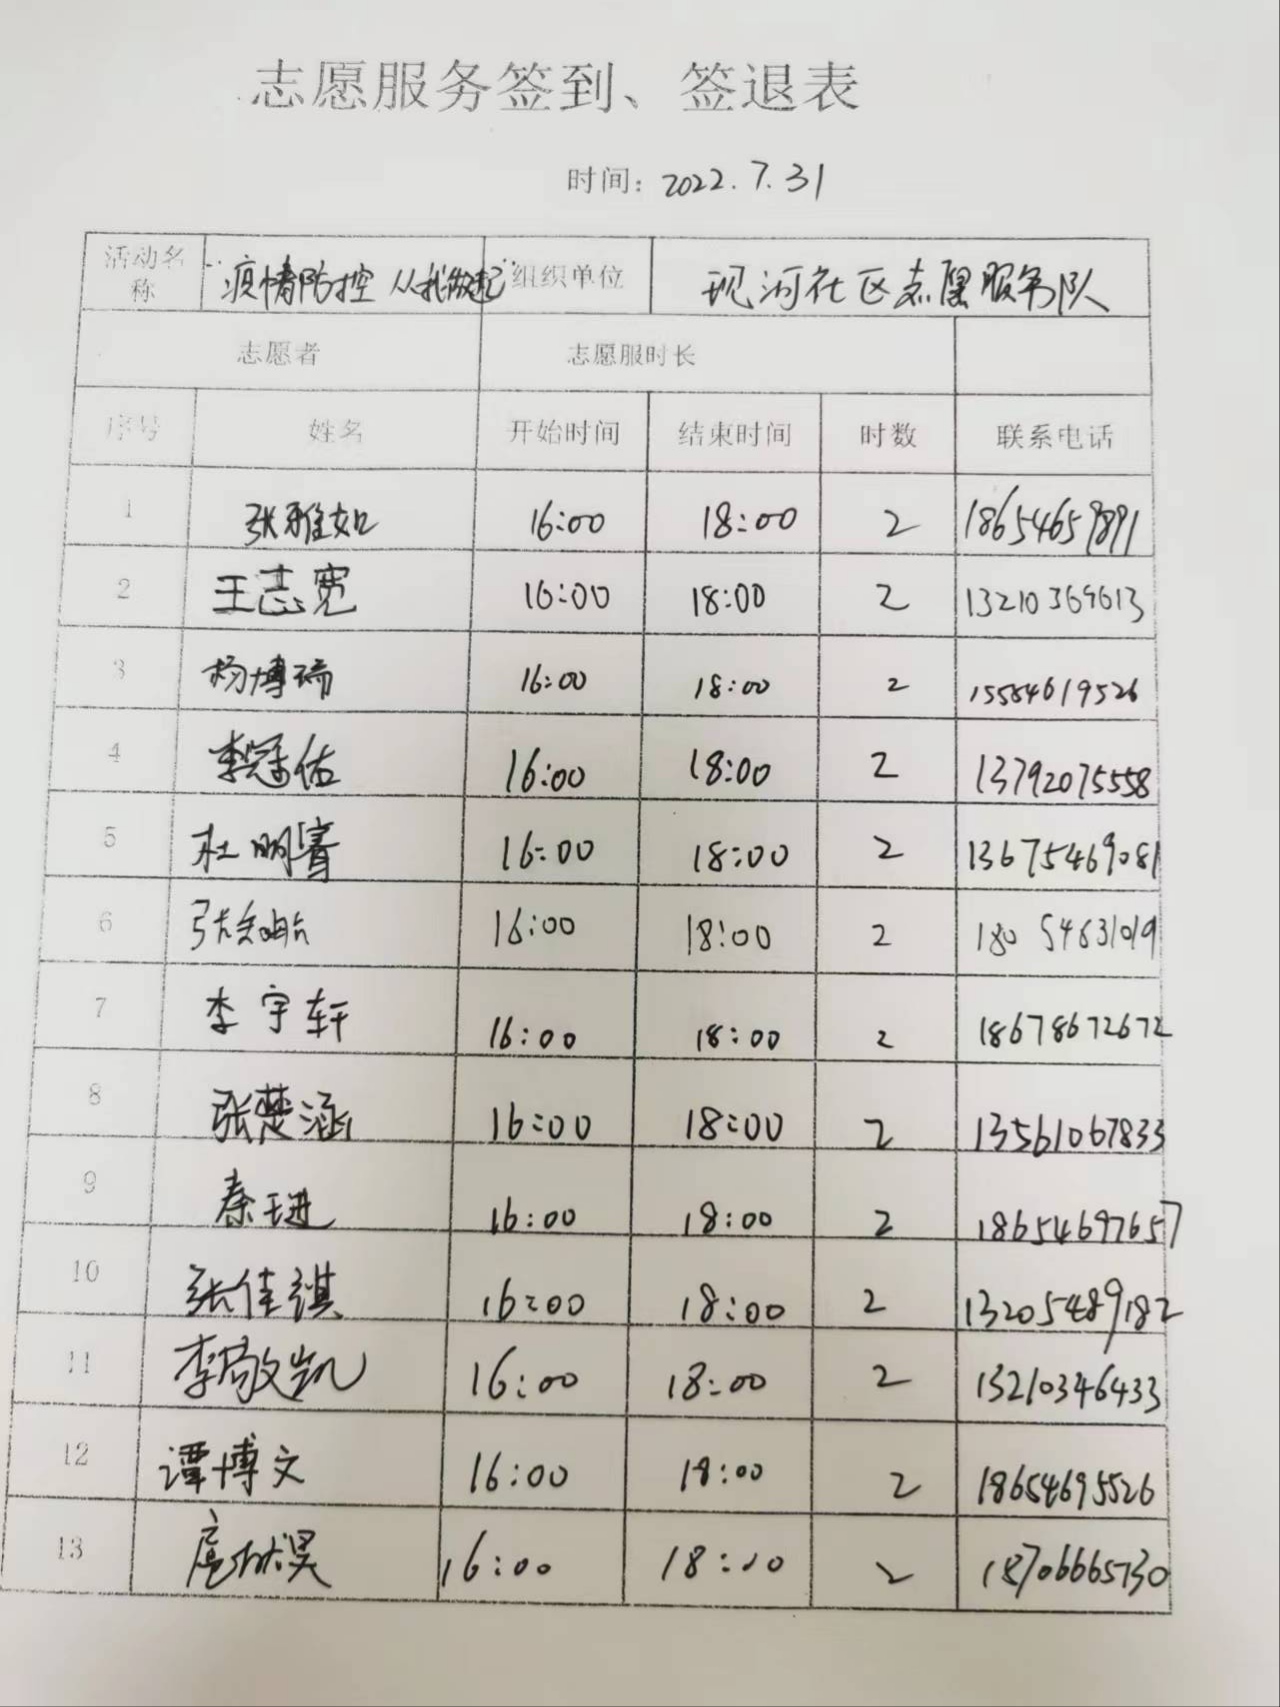 志愿服务签到、签退表
时间: 2022.7.31
活动名称 疫情防控 从我做起 组织单位 现河社区志愿服务队
志愿者 志愿服时长
序号 姓名 开始时间 结束时间 时数 联系电话
1 张雅如 16:00 18:00 2 18654659891
2 王志宽 16:00 18:00 2 13210369613
3 杨博瑞 16:00 18:00 2 15554619526
4 李冠佑 16:00 18:00 2 13792075558
5 杜明睿 16:00 18:00 2 13675469081
6 16:00 18:00 2 180 54631019
7 李宇轩 16:00 18:00 2 18678672672
8 张楚涵 16:00 18:00 2 13561067833
9 秦王进 16:00 18:00 2 18654697657
10 张佳琪 16:00 18:00 2 13205489182
11 李敬凯 16:00 18:00 2 13210346433
12 谭博文 16:00 18:00 2 18654695526
13 16:00 18:00 2 18706665730